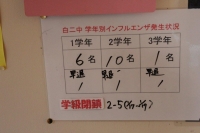 白二中 学年別インフルエンザ発生状況
1学年 2学年 3学年
6名 10名 1名
早退 早退 早退
1 1 1
学級閉鎖 2-5